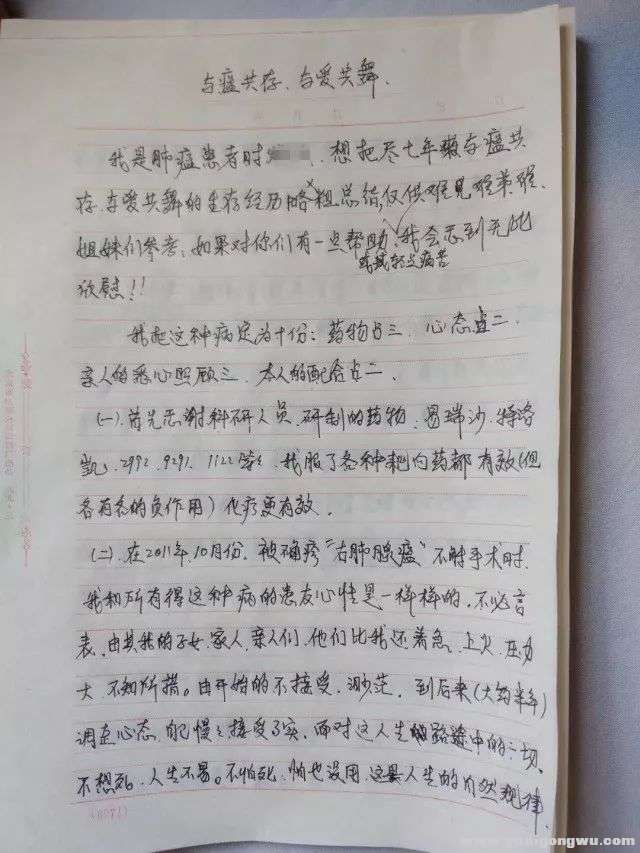 与癌共存、与爱共舞、
我是肺癌患者时 想把尽七年艰与癌共
存、与爱共舞的生存经历略粗总结仅供难兄难弟难
姐妹们参考、如果对你们有一点帮助、我会感到无比
或减轻点病苦
欣慰!!
我把这种病定为十份: 药物占三、心态占二、
亲人的悉心照顾三、本人的配合占二、
(一)、首先感谢科研人员、研制的药物、易瑞沙、特洛
凯、2992、9291、1122等等 我服了各种靶向药都有效(但
各有各的负作用)化疗更有效、
(二)、在2011年、10月份、被确疹“右肺腺癌”不能手术时、
我和所有得这种病的患友心情是一样样的、不必言
表、由其我的子女、家人、亲人们、他们比我还着急、上火、压力
大、不知所措。由开始的不接受、渺茫、到后来(大约半年)
调正心态、自己慢慢接受了实、面对这人生的路途中的一切、
不想死、人生不易。不怕死、怕也没用、这是人生的自然规律、
www.yuaigongwu.com